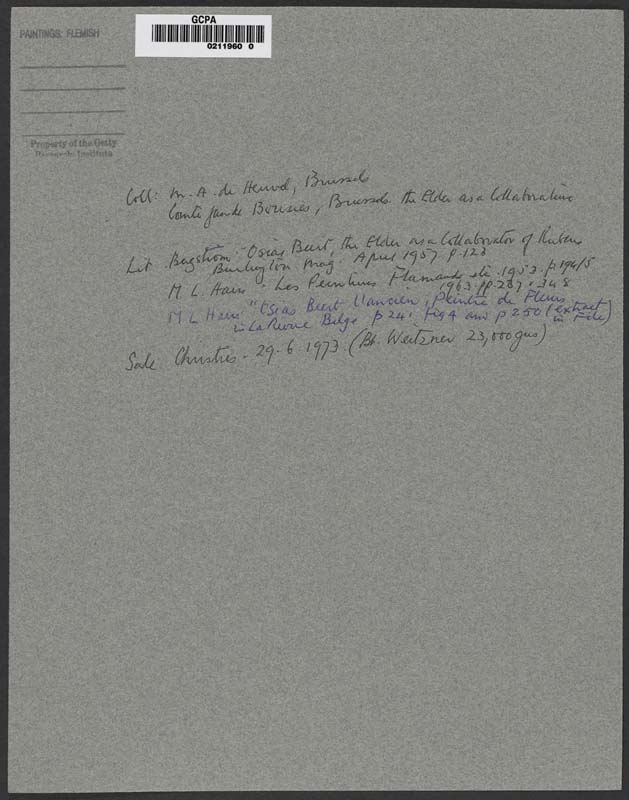 PAINTINGS: FLEMISH
GCPA
0211960 0
Property of the Getty
Research Institute
Coll: M. A. de Heuvel, Brussels
Comte de Bousies, Brussels. the Elder as a Collaborator
Lit Bergström, "Osias Beert, the Elder as a Collaborator of Rubens
Burlington Mag. April 1957 p. 123
M. L. Hairs - Les Peintres Flamands etc. 1953. p. 194/5
1963. pp. 237, 348
M L Hairs "Osias Beert l'ancien, peintre de Fleurs
in La Revue Belge p 241 Fig 4 and p 250 (extract
in File)
Sale Christies - 29. 6. 1973 (Bt. Weitzner 23,000 gns)